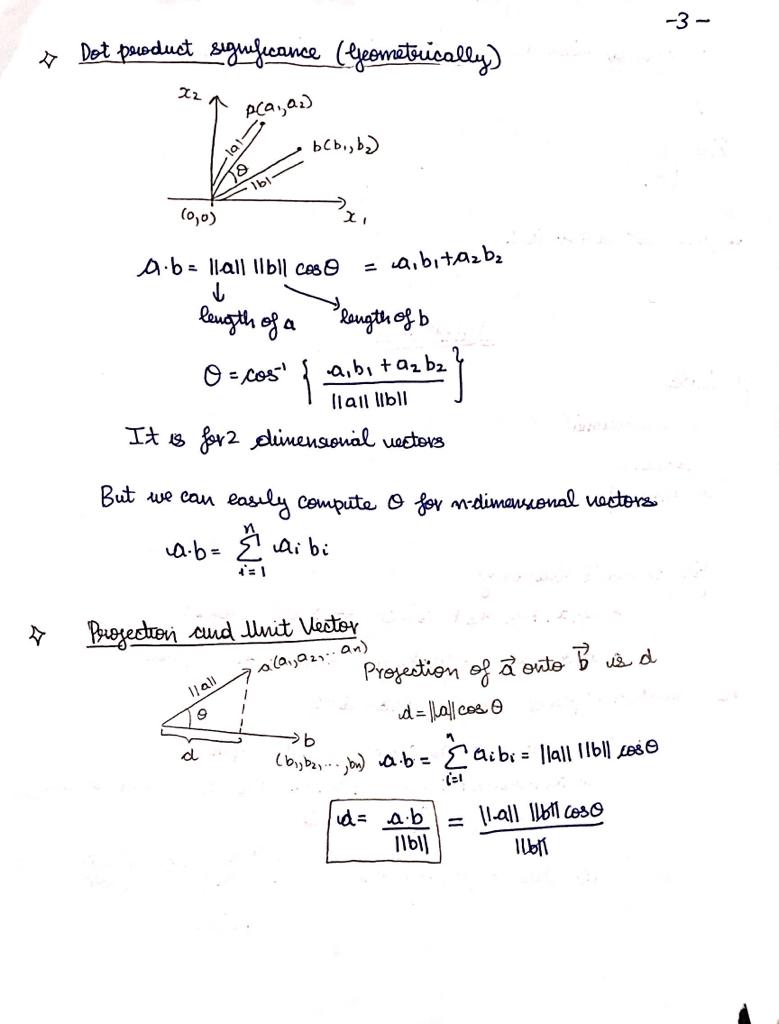 -3-
Dot product significance (Geometrically)
x₂
p(a₁,a₂)
b(b₁,b₂)
|a|
θ
|b|
(0,0)
x₁
a·b = ||a|| ||b|| cosθ = a₁b₁+a₂b₂
↓
length of a length of b
θ = cos⁻¹ { (a₁b₁ + a₂b₂) / (||a|| ||b||) }
It is for 2 dimensional vectors
But we can easily compute θ for n-dimensional vectors
a·b = Σⁿᵢ₌₁ aᵢ bᵢ
Projection and Unit Vector
a(a₁,a₂,..an)
||a||
θ
d
b
(b₁,b₂,...,bn)
Projection of a⃗ onto b⃗ is d
d=||a||cosθ
a·b = Σⁿᵢ₌₁ aᵢbᵢ = ||a|| ||b|| cosθ
d = a·b / ||b|| = ||a|| ||b|| cosθ / ||b||